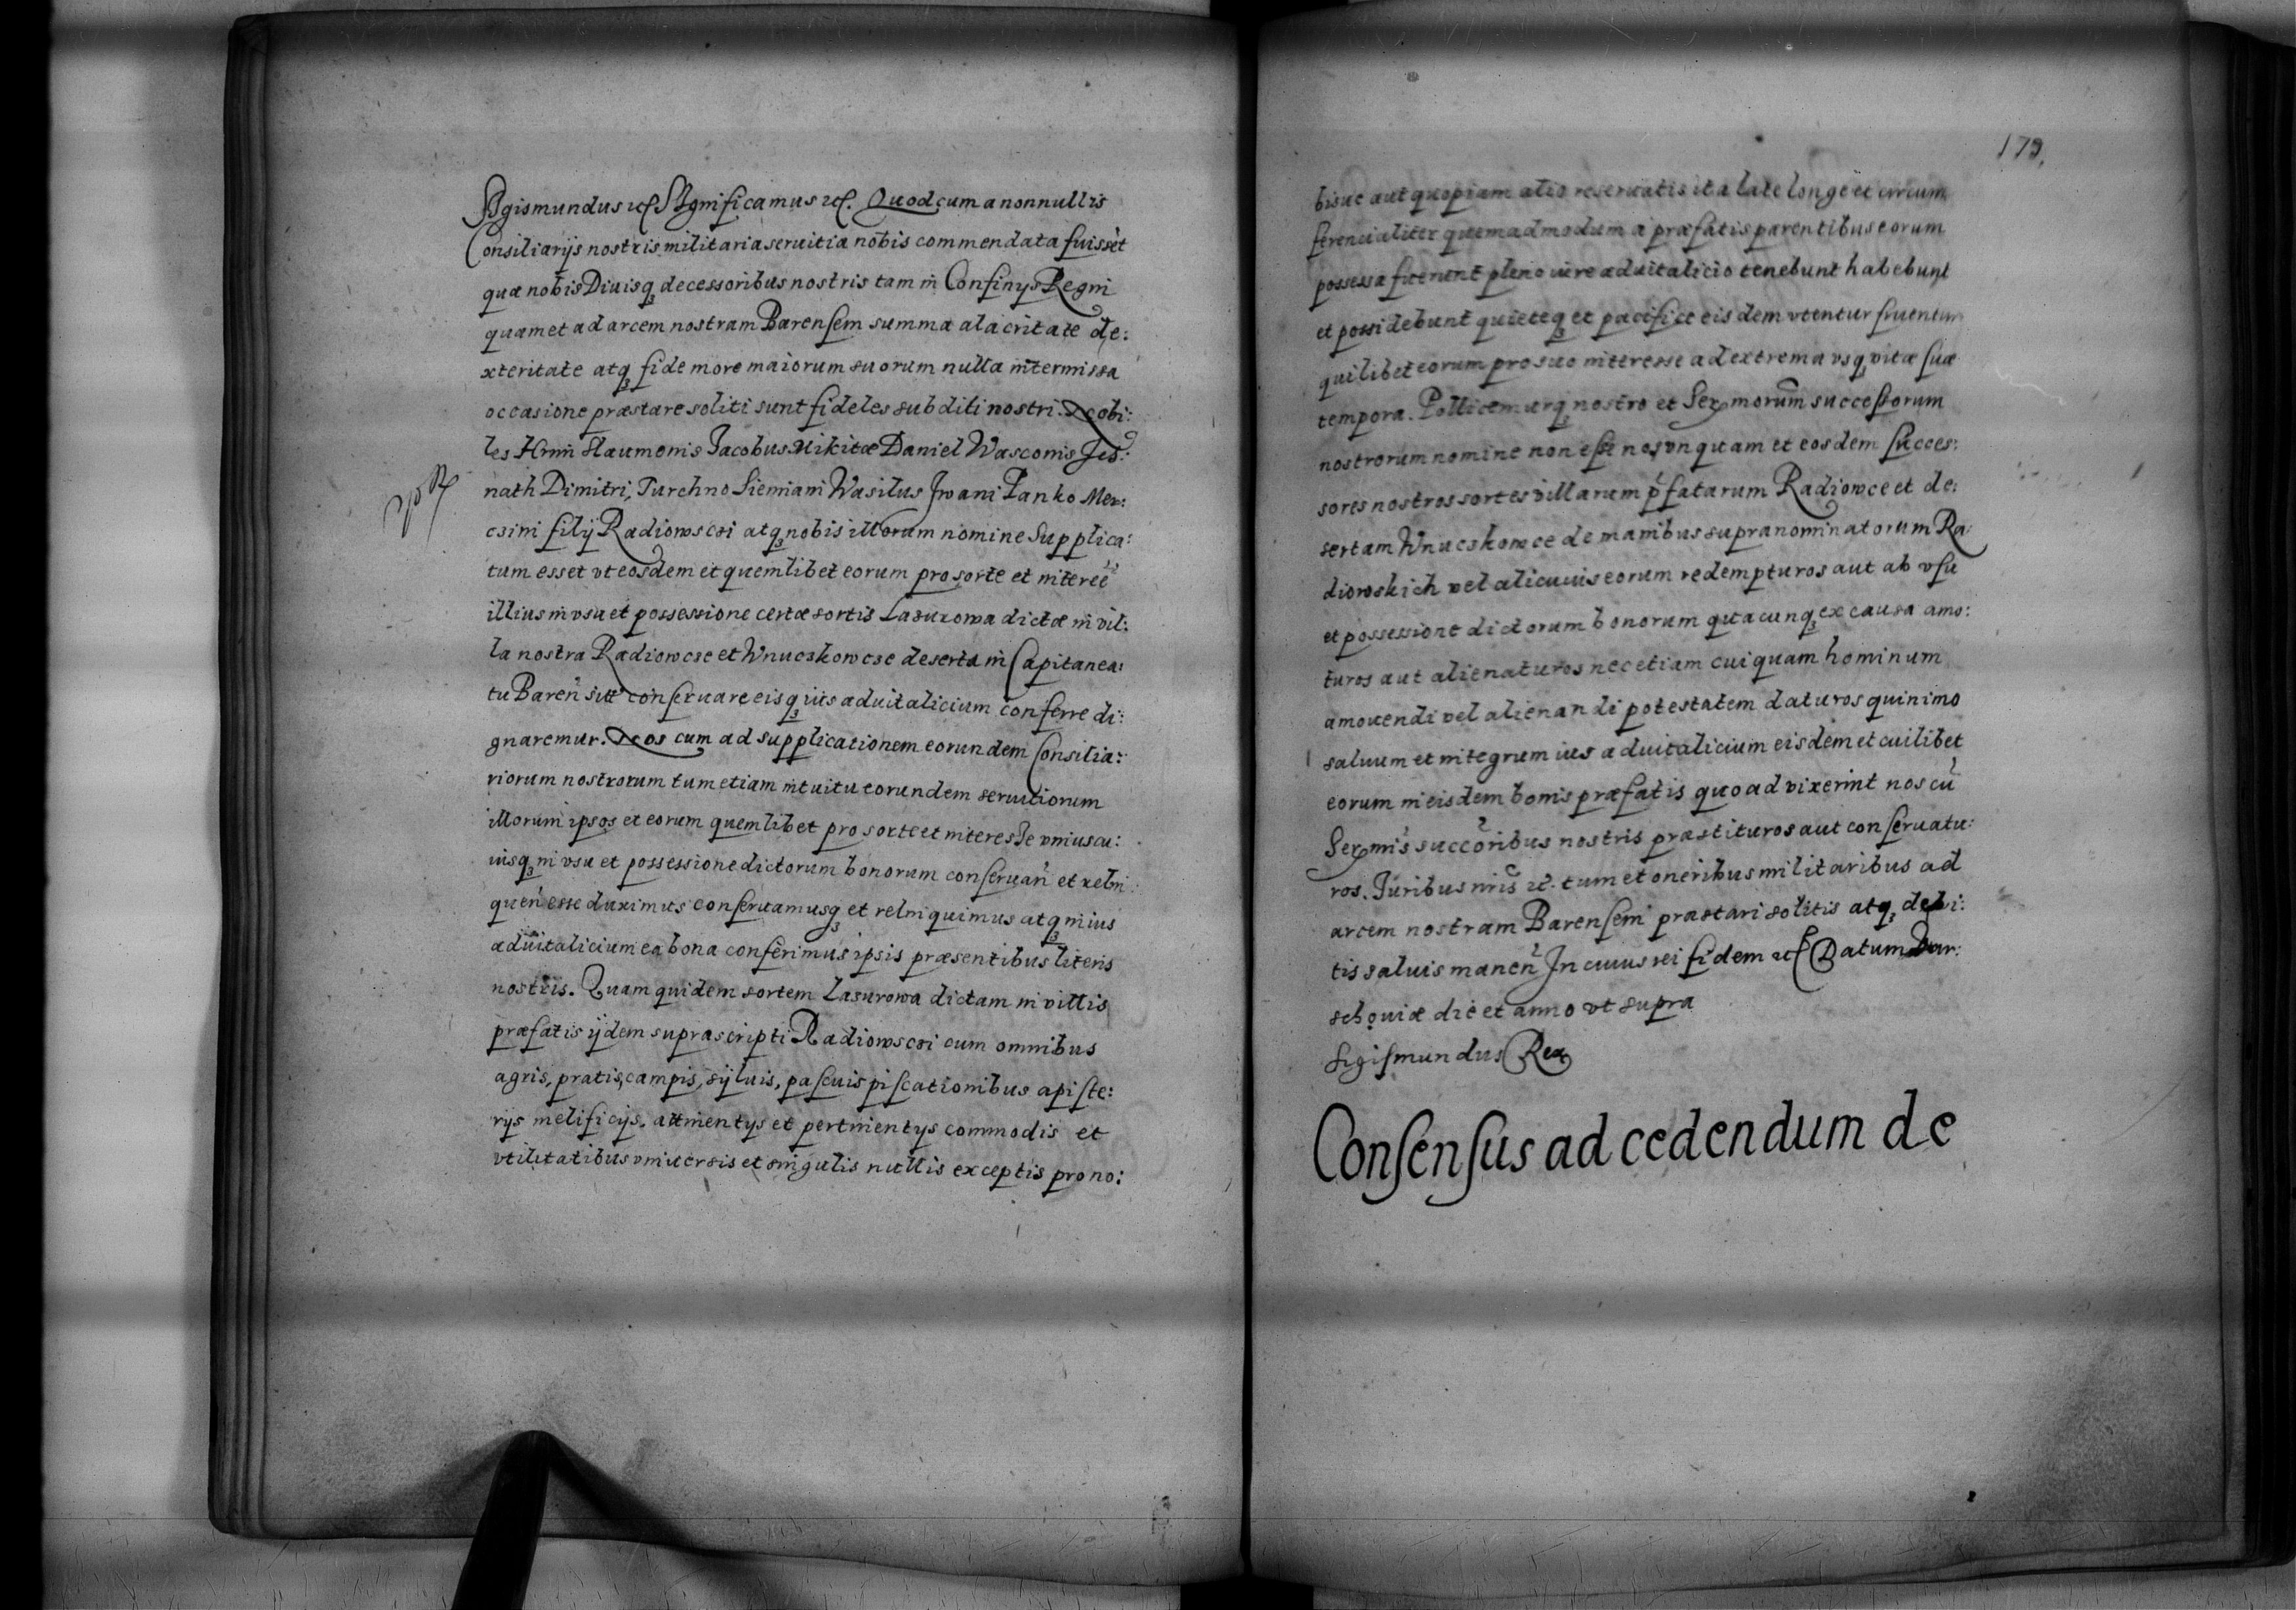 Sigismundus etc Significamus etc. Quod cum a nonnullis
Consiliarijs nostris militaria seruitia nobis commendata fuissēt
quæ nobis Diuisq3 decessoribus nostris tam in Confinijs Regni
quam et ad arcem nostram Barensem summa alacritate de:
xteritate atq3 fide more maiorum suorum nulla intermissa
occasione præstare soliti sunt fideles subditi nostri Nobi:
les Hrin Naumonis Jacobus Nikitæ Daniel Wasconis Jed:
nath Dimitri, Turchno Siemiani Wasilus Jwani Panko Mer:
csini filij Radiowscsi atq3 nobis illorum nomine Supplica:
tum esset vt eosdem et quemlibet eorum pro sorte et interēē
illius in vsu et possessione certæ sortis Lasurowa dictæ in vil:
la nostra Radiowcse et Wnucskowcse deserta in Capitanea:
tu Bareñ sitæ conseruare eisq3 ius aduitalicium conferre di:
gnaremur. Nos cum ad supplicationem eorundem Consilia:
riorum nostrorum tum etiam intuitu eorundem seruitiorum
illorum ipsos et eorum quemlibet pro sorte et interesse vniuscu:
iusq3 in vsu et possessione dictorum bonorum conseruañ et relin
queñ esse duximus conseruamusq3 et relinquimus atq3 in ius
aduitalicium ea bona conferimus ipsis præsentibus literis
nostris. Quam quidem sortem Lasurowa dictam in villis
præfatis ijdem suprascripti Radiowscsi cum omnibus
agris, pratis, campis, syluis, pascuis piscationibus apiste:
rijs melificijs, attinentijs et pertinentijs commodis et
vtilitatibus vniuersis et singulis nullis exceptis pro no:
179.
bisue aut quopiam alio reseruatis ita late longe et circum
ferencialiter quemadmodum a præfatis parentibus eorum
possessa fuerunt pleno iure aduitalicio tenebunt habebunt
et possidebunt quieteq3 et pacifice eisdem vtentur fruentur
quilibet eorum pro suo interesse ad extrema vsq3 vitæ suæ
tempora. Pollicemurq3 nostro et Sermorum successorum
nostrorum nomine non esse nos vnquam et eosdem succes:
sores nostros sortes villarum pfatarum Radiowce et de:
sertam Wnucskowce de manibus supranominatorum Ra
diowskich vel alicuius eorum redempturos aut ab vsu
et possessione dictorum bonorum quacunq3 ex causa amo:
turos aut alienaturos nec etiam cuiquam hominum
amouendi vel alienandi potestatem daturos quinimo
saluum et integrum ius aduitalicium eisdem et cuilibet
eorum in eisdem bonis præfatis quoad vixerint nos cū
Sermis succoribus nostris præstituros aut conseruatu:
ros. Juribus nris etc. tum et oneribus militaribus ad
arcem nostram Barensem præstari solitis atq3 debi:
tis saluis maneñ In cuius rei fidem etc Datum Var:
schouiæ die et anno vt supra
Sigismundus Rex
Consensus ad cedendum de